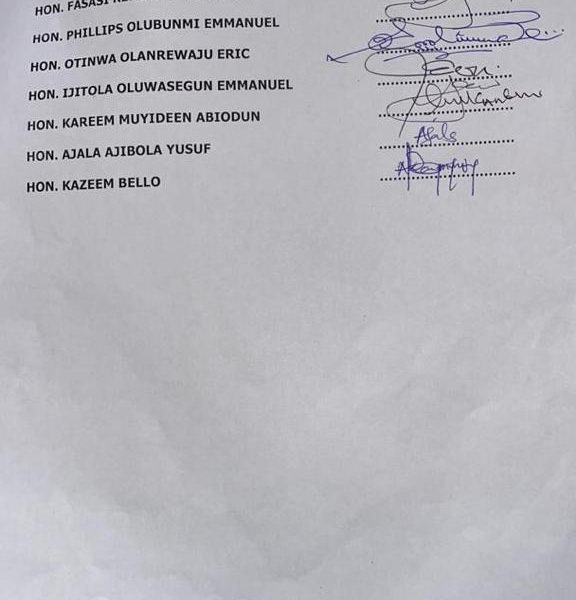 HON. FASASI
HON. PHILLIPS OLUBUNMI EMMANUEL
HON. OTINWA OLANREWAJU ERIC
HON. IJITOLA OLUWASEGUN EMMANUEL
HON. KAREEM MUYIDEEN ABIODUN
HON. AJALA AJIBOLA YUSUF
Ajala
HON. KAZEEM BELLO